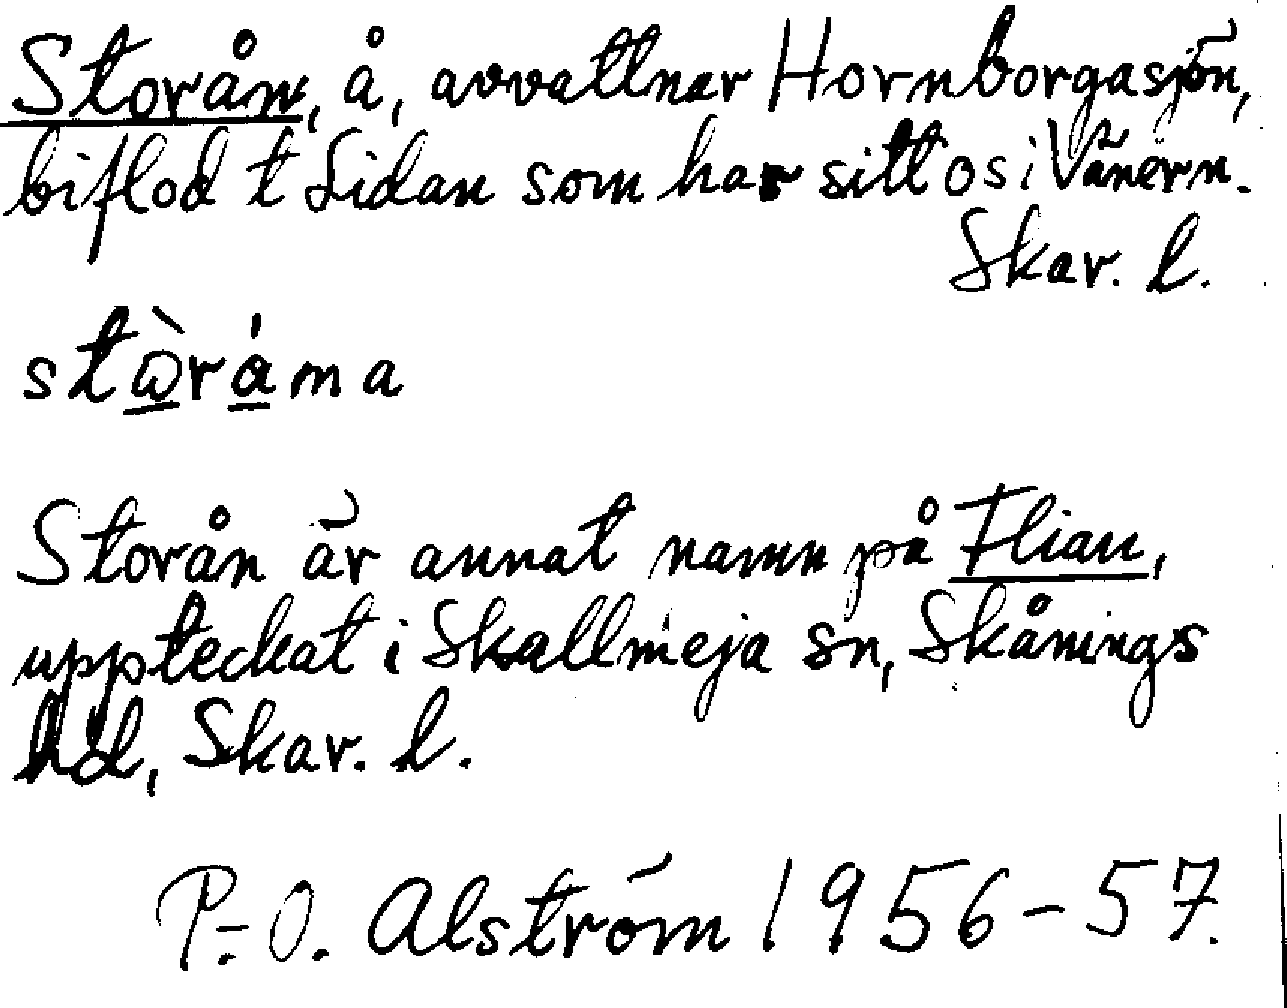 Storån, å, avvattnar Hornborgasjön,
biflod t Lidan som har sitt os i Vänern.
Skar. l.
stὼráma
Storån är annat namn på Flian,
upptecknat i Skallmeja sn, Skånings
hd, Skar. l.
P.-O. Alström 1956-57.